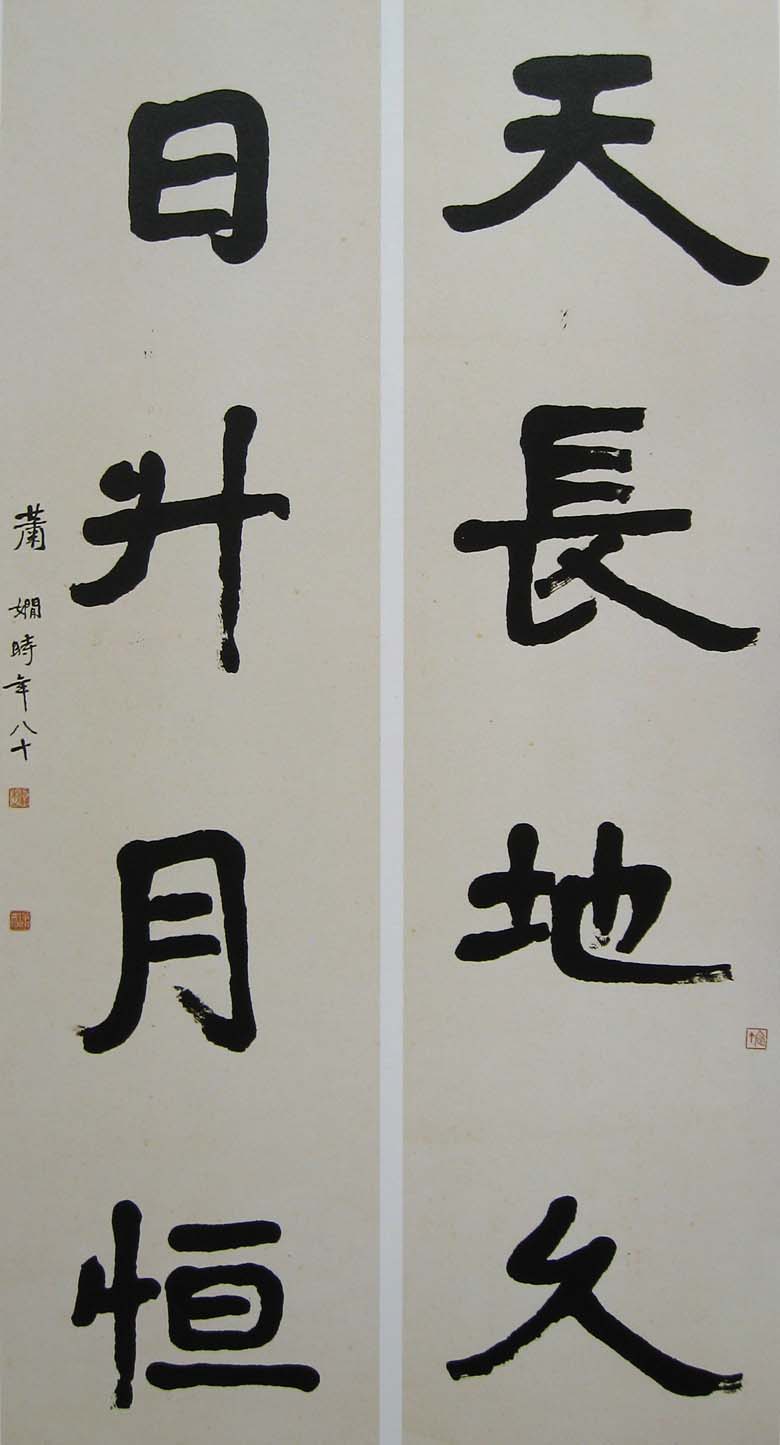 天長地久
日升月恒
蕭嫺時年八十